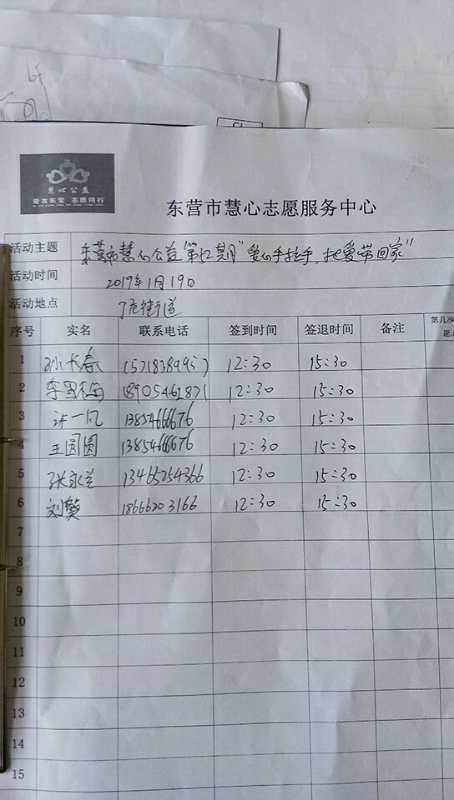 慧心公益
爱在东营 志愿同行
东营市慧心志愿服务中心
活动主题 东营市慧心公益"第12期"爱心手拉手,把爱带回家"
活动时间 2019年1月19日
活动地点 丁庄街道
序号 实名 联系电话 签到时间 签退时间 备注
1 孙长春 12:30 15:30
2 李雪梅 18905461871 12:30 15:30
3 许一凡 13854666676 12:30 15:30
4 王圆圆 13854666676 12:30 15:30
5 张永兰 13465254366 12:30 15:30
6 刘 18666203166 12:30 15:30
7
8
9
10
11
12
13
14
15